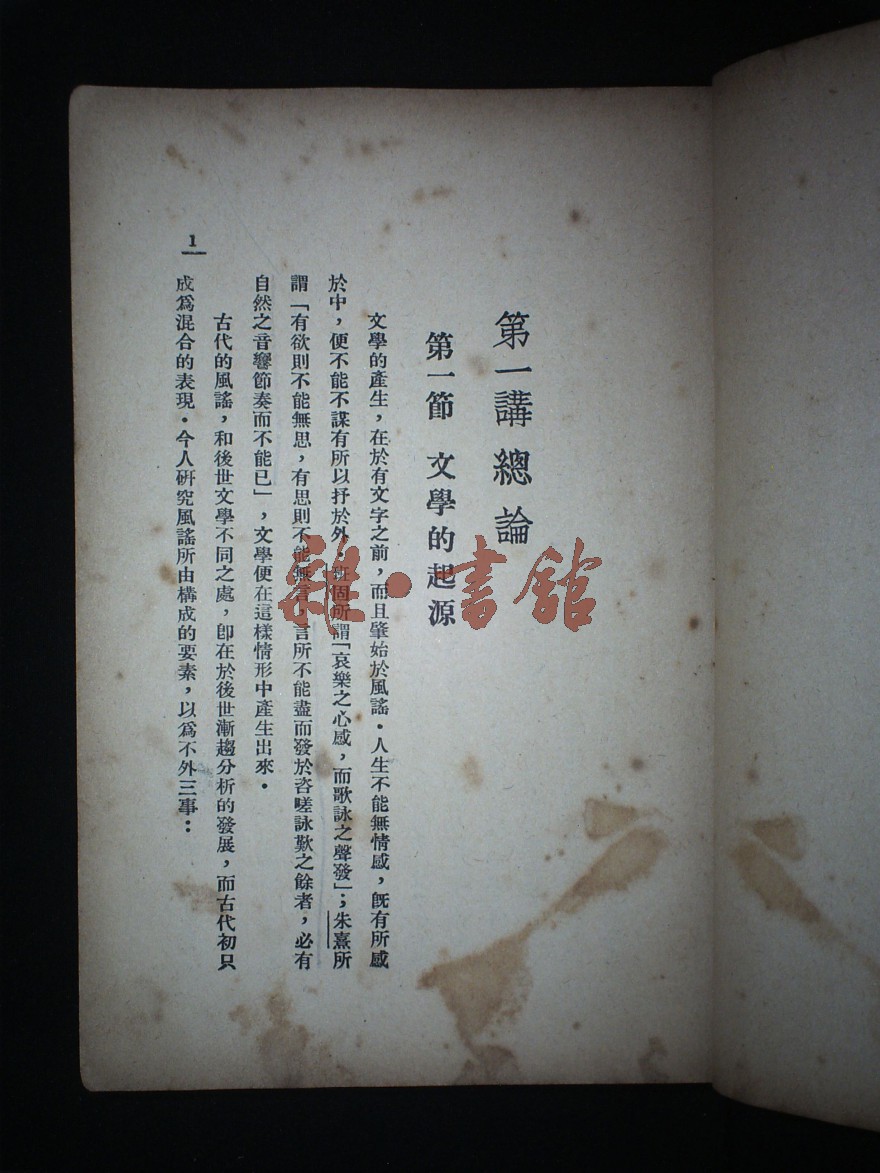 第一講 總論
第一節 文學的起源
文學的產生，在於有文字之前，而且肇始於風謠．人生不能無情感，旣有所感
於中，便不能不謀有所以抒於外．班固所謂「哀樂之心感，而歌詠之聲發」；朱熹所
謂「有欲則不能無思，有思則不能無言，言所不能盡而發於咨嗟詠歎之餘者，必有
自然之音響節奏而不能已」，文學便在這樣情形中產生出來．
古代的風謠，和後世文學不同之處，卽在於後世漸趨分析的發展，而古代初只
成爲混合的表現．今人硏究風謠所由構成的要素，以爲不外三事：
1
雜·書館